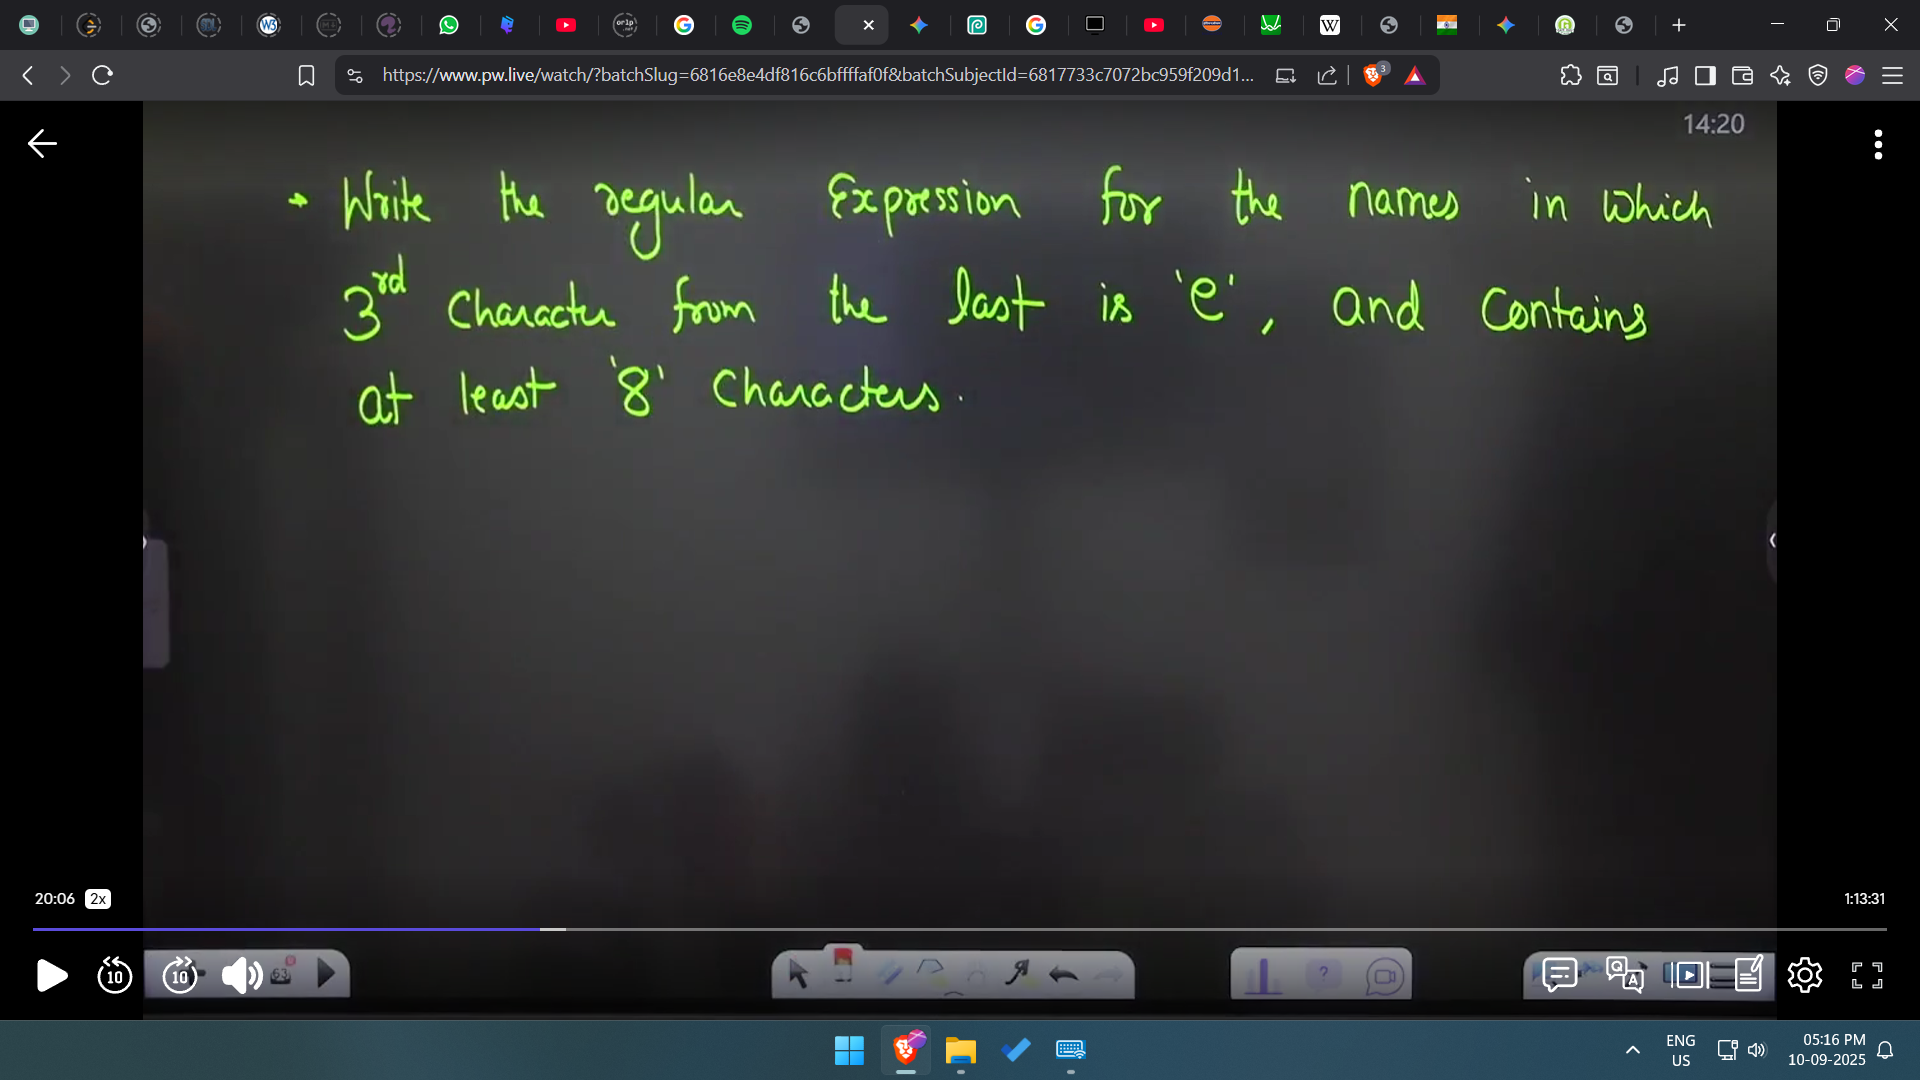 https://www.pw.live/watch/?batchSlug=6816e8e4df816c6bffffaf0f&batchSubjectId=6817733c7072bc959f209d1...
3
14:20
→ Write the regular Expression for the names in which
3rd Character from the last is 'e', and Contains
at least '8' Characters.
20:06 2x
1:13:31
10 10 63
ENG
US
05:16 PM
10-09-2025